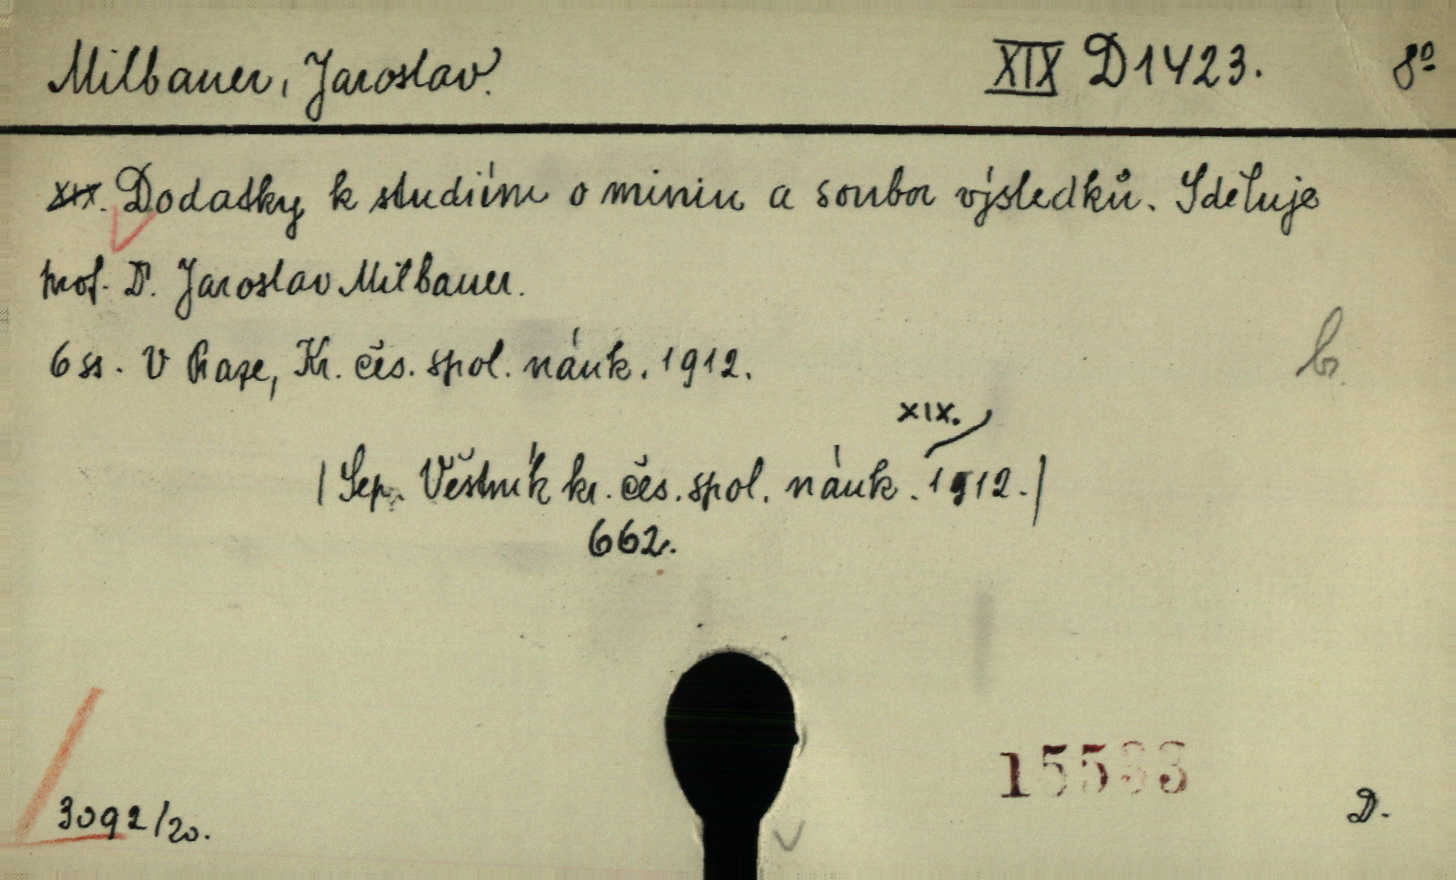 Milbauer, Jaroslav.
XIX D1423. 8º
XIX. Dodatky k studiím o miniu a soubor výsledků. Sděluje
prof. Dr. Jaroslav Milbauer.
6 ss. V Praze, Kr. čes. spol. náuk. 1912.
b.
XIX.
/Sep. Věstník kr. čes. spol. náuk. 1912./
662.
3092/20.
D.